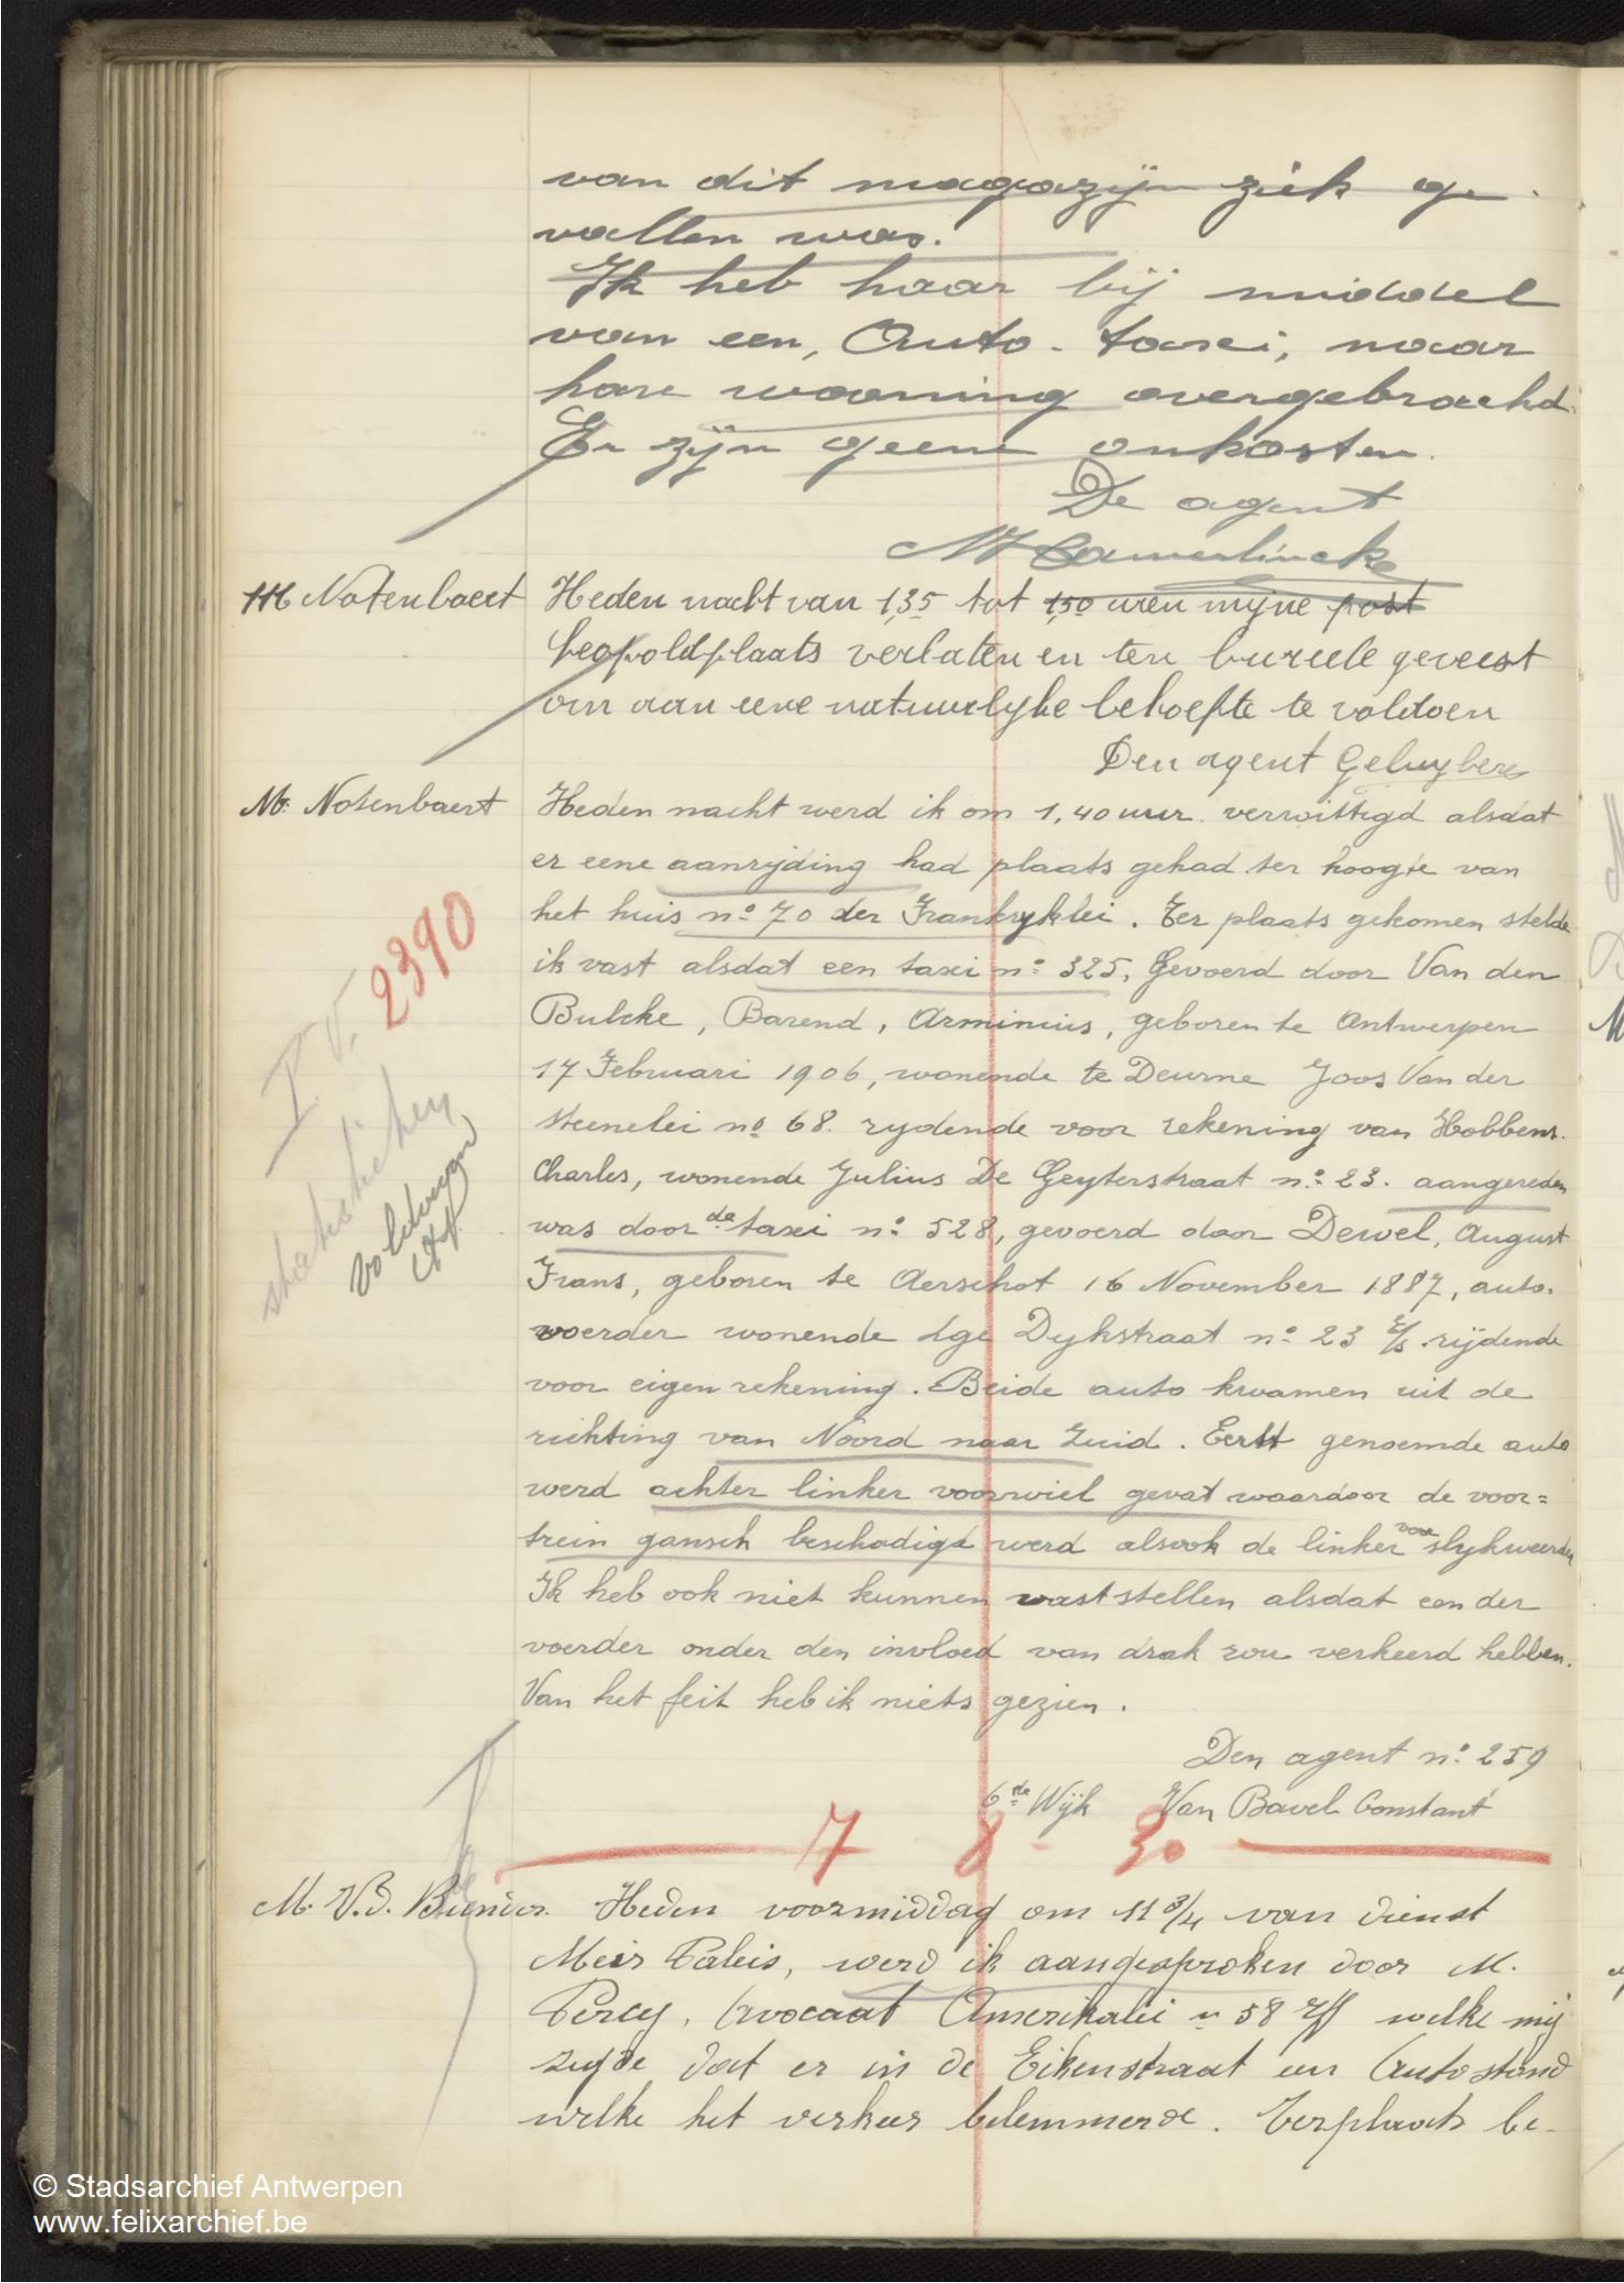 van dit magazijn ziek ge-
vallen was.
Ik heb haar bij middel
van een, Auto-taxi, naar
hare wooning overgebracht
Er zijn geene onkosten.
De agent
M Notenbaert
Heden nacht van 1,35 tot 1,50 uren mijne post
Leopoldplaats verlaten en ten bureele geweest
om aan eene natuurlyke behoefte te voldoen
Den agent Geluykens
M. Notenbaert
Heden nacht werd ik om 1,40 uur verwittigd alsdat
er eene aanrijding had plaats gehad ter hoogte van
het huis n° 70 der Frankryklei. Ter plaats gekomen stelde
ik vast alsdat een taxi n° 325, gevoerd door Van den
Bulcke, Barend, Arminius, geboren te Antwerpen
17 Februari 1906, wonende te Deurne Joos Van der
Steenelei n° 68. rydende voor rekening van Hobbens
Charles, wonende Julius De Geyterstraat n° 23. aangereden
was door de taxi n° 528, gevoerd door Dewel, August
Frans, geboren te Aerschot 16 November 1887, auto-
voerder wonende Lge Dykstraat n° 23 rijdende
voor eigen rekening. Beide auto kwamen uit de
richting van Noord naar Zuid. Eerst genoemde auto
werd achter linker voorwiel gevat waardoor de voor=
trein gansch beschadigd werd alsook de linker voor slykweerder
Ik heb ook niet kunnen vaststellen alsdat een der
voerder onder den invloed van drak zou verkeerd hebben.
Van het feit heb ik niets gezien.
P.V. 2390
Den agent n° 259
6de Wijk Van Bavel Constant
7 - 8 - 30
M. V.D. Heden voormiddag om 11 3/4 van dienst
Meir Paleis, werd ik aangesproken door M.
Percy, Avocaat Amerikalei n 58 welke mij
zegde dat er in de Eikenstraat een Auto stond
welke het verkeer belemmerde. Terplaats be-
© Stadsarchief Antwerpen
www.felixarchief.be